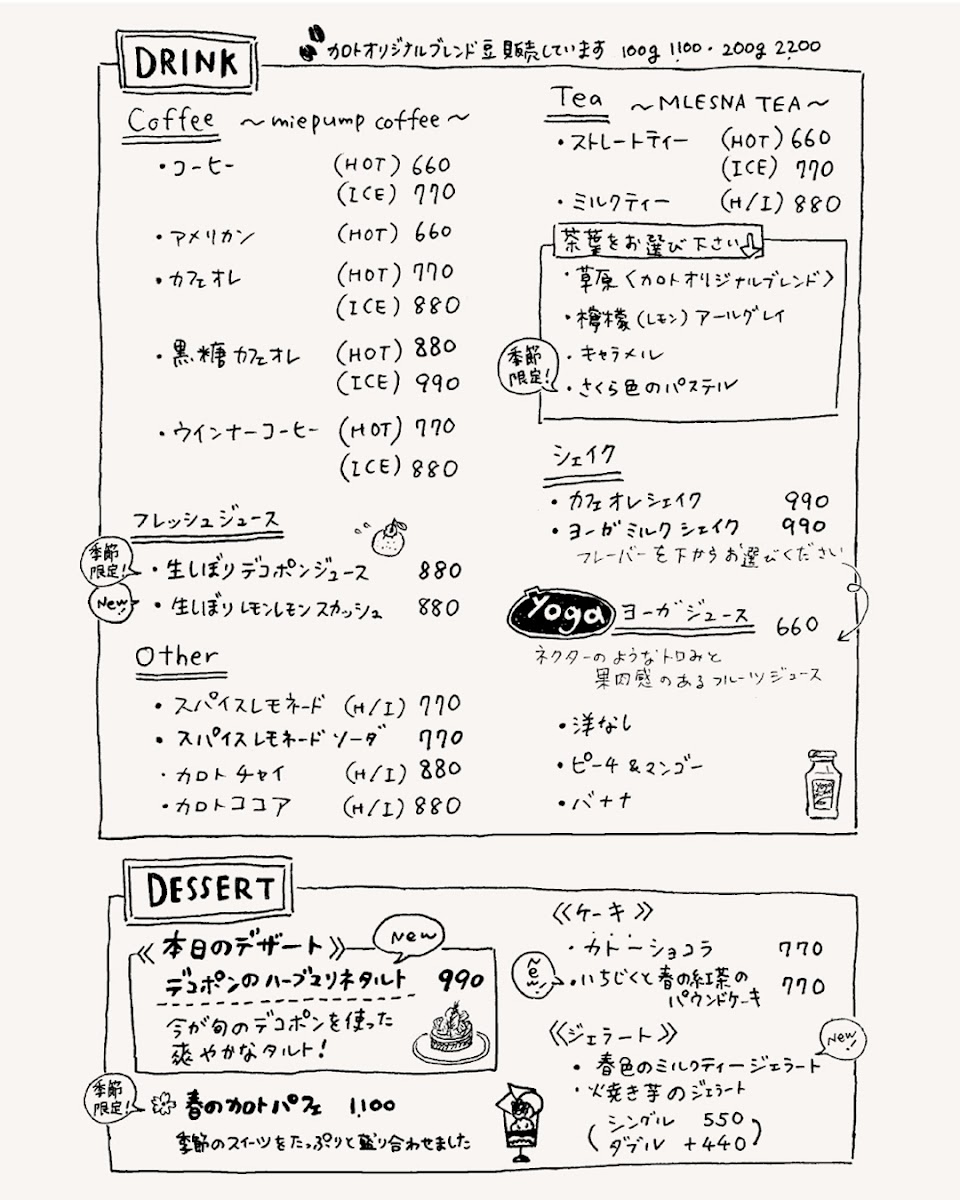 DRINK
カロトオリジナルブレンド豆 販売しています 100g 1,100・200g 2,200
Coffee 〜miepump coffee〜
・コーヒー (HOT) 660
(ICE) 770
・アメリカン (HOT) 660
・カフェオレ (HOT) 770
(ICE) 880
・黒糖カフェオレ (HOT) 880
(ICE) 990
・ウインナーコーヒー (HOT) 770
(ICE) 880
フレッシュジュース
季節
限定!
・生しぼりデコポンジュース 880
New!
・生しぼりレモンレモンスカッシュ 880
Other
・スパイスレモネード (H/I) 770
・スパイスレモネードソーダ 770
・カロトチャイ (H/I) 880
・カロトココア (H/I) 880
Tea 〜MLESNA TEA〜
・ストレートティー (HOT) 660
(ICE) 770
・ミルクティー (H/I) 880
茶葉をお選び下さい
・草原〈カロトオリジナルブレンド〉
・檸檬(レモン)アールグレイ
・キャラメル
季節
限定!
・さくら色のパステル
シェイク
・カフェオレシェイク 990
・ヨーガミルクシェイク 990
フレーバーを下からお選びください
Yoga ヨーガジュース 660
ネクターのようなトロみと
果肉感のあるフルーツジュース
・洋なし
・ピーチ&マンゴー
・バナナ
DESSERT
《本日のデザート》 New
デコポンのハーブマリネタルト 990
今が旬のデコポンを使った
爽やかなタルト!
季節
限定!
春のカロトパフェ 1,100
季節のスイーツをたっぷりと盛り合わせました
《ケーキ》
・ガトーショコラ 770
New!
・いちじくと春の紅茶の
パウンドケーキ 770
《ジェラート》
New!
・春色のミルクティージェラート
・火焼き芋のジェラート
(シングル 550
ダブル +440)